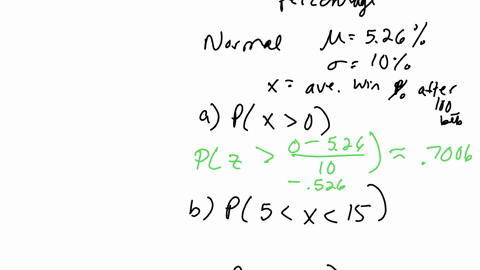 percentage
Normal μ = 5.26%
σ = 10%
x = ave. win % after
100
bets
a) P(x > 0)
P(z > 0 - 5.26 / 10) ≈ .7006
- .526
b) P(5 < x < 15)